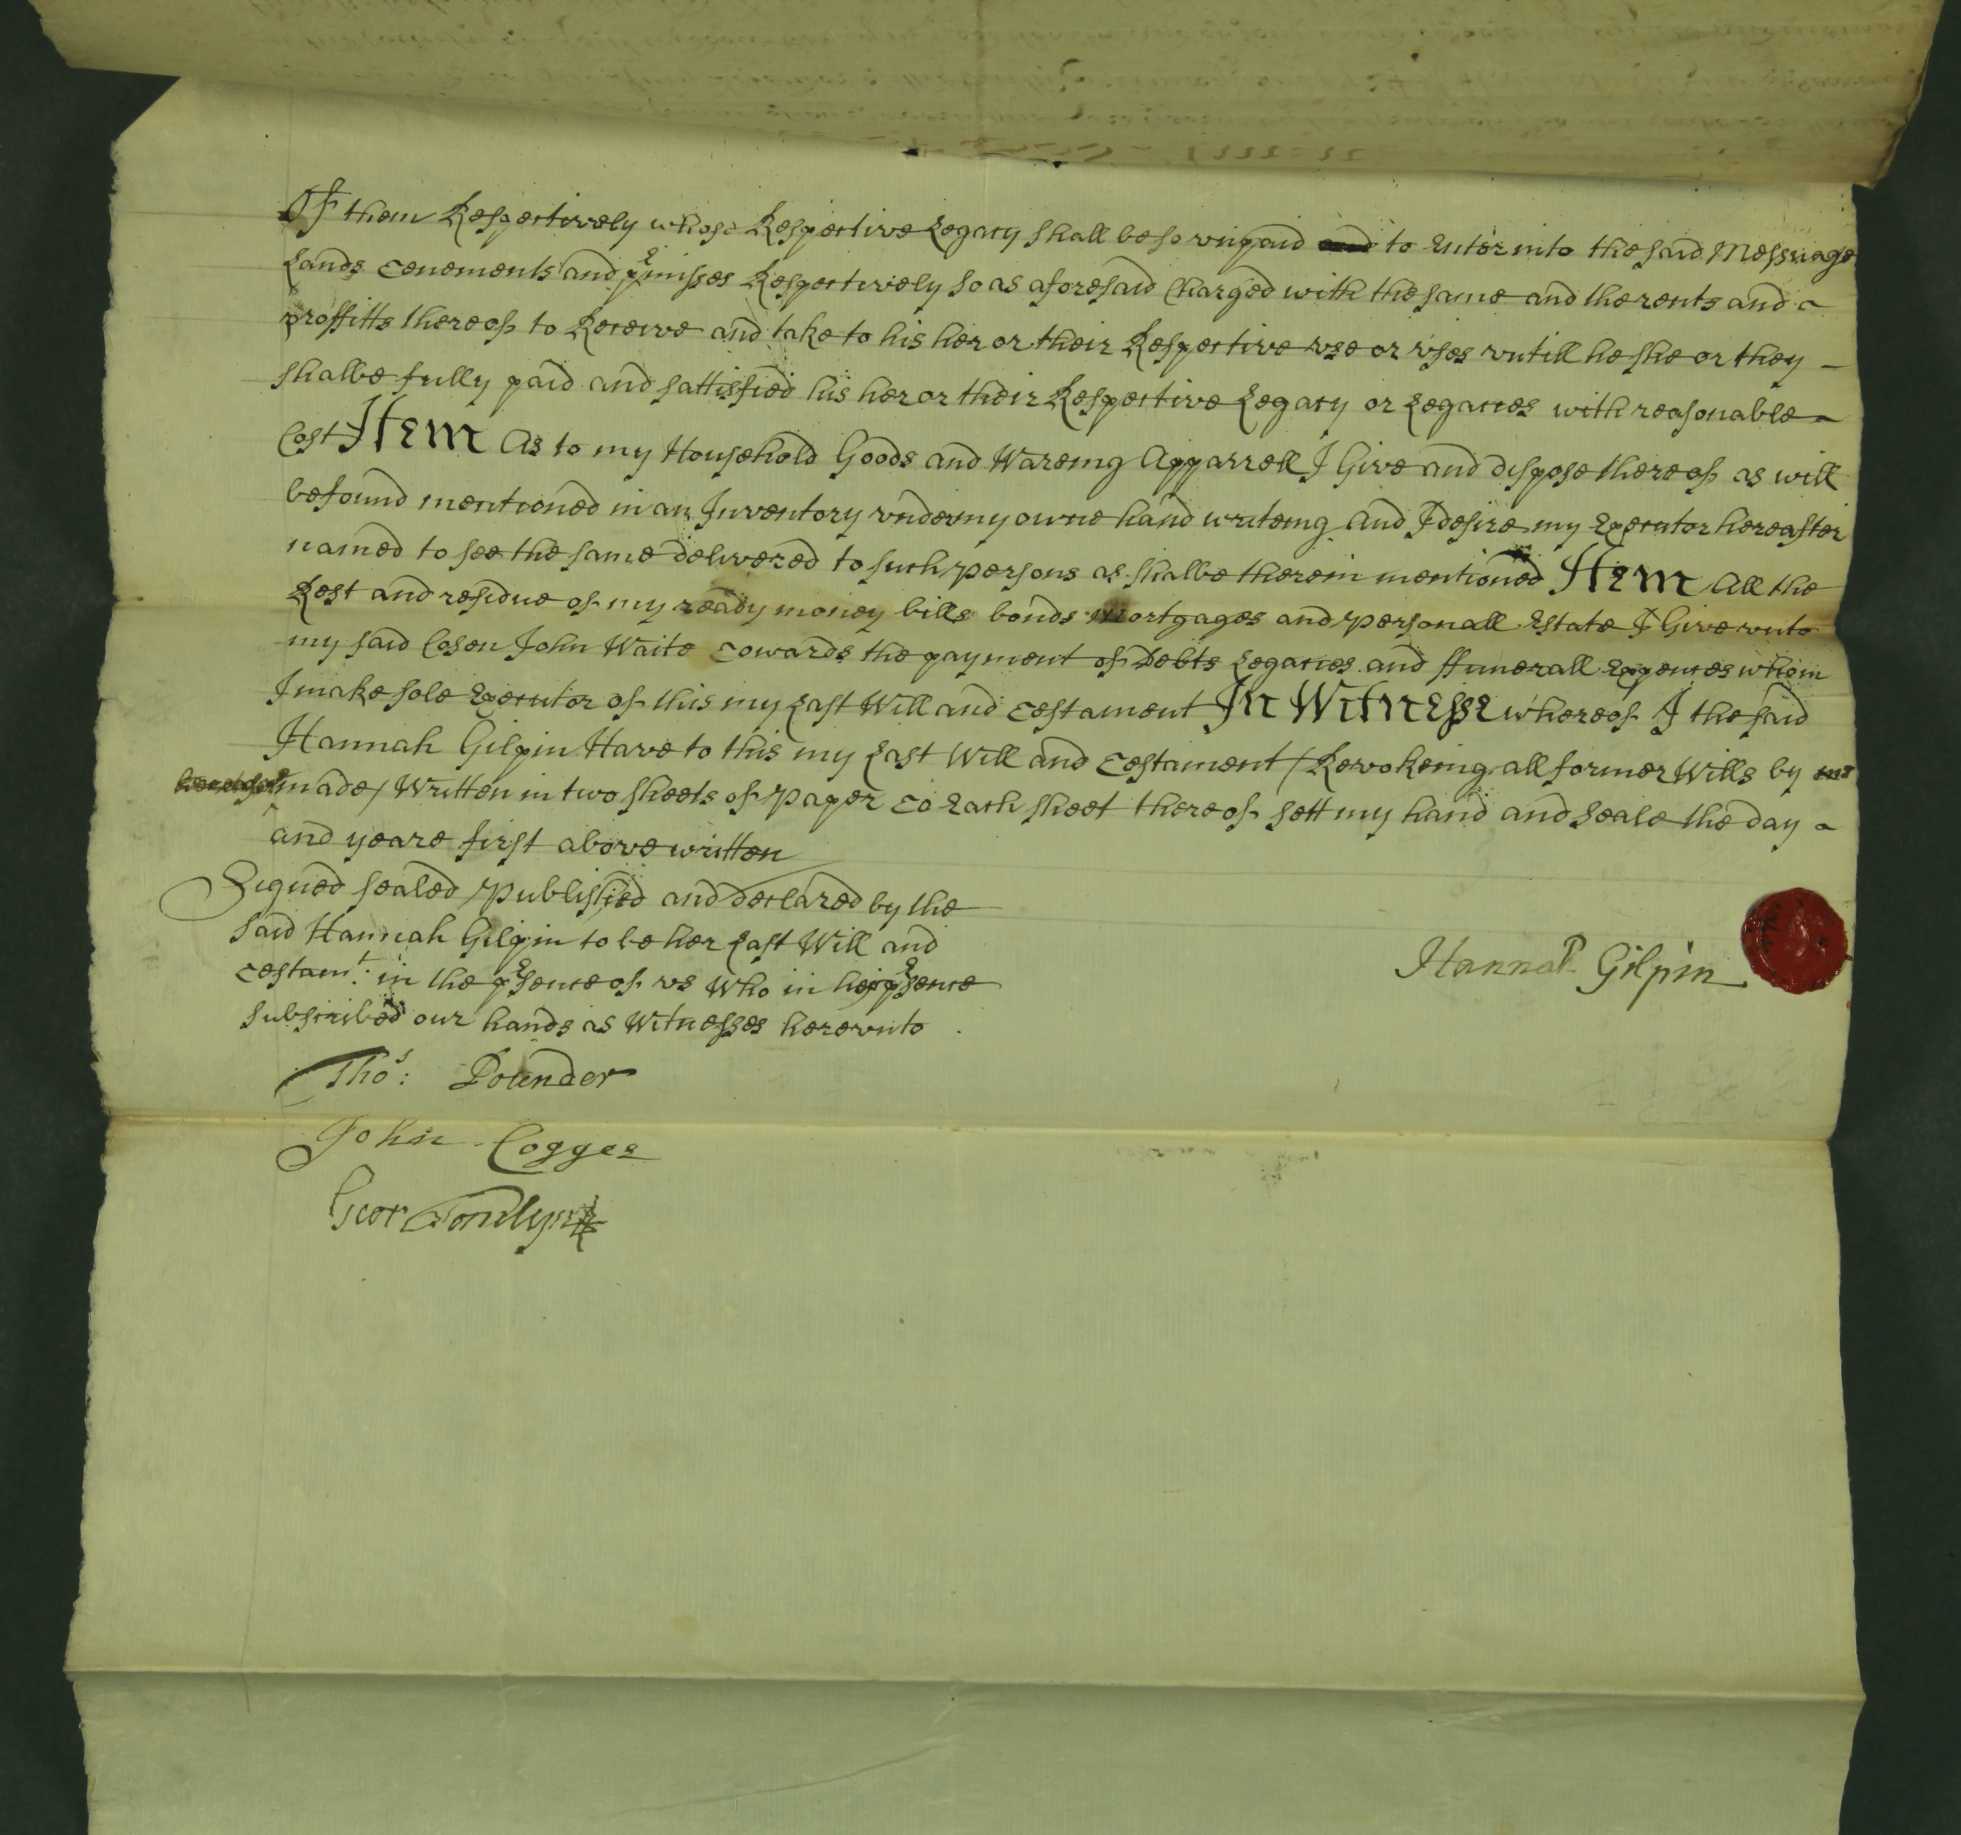 Of them Respectively whose Respective Legacy shall be so vnpaid to Enter into the said Messuage
Lands Tenements and pEmisses Respectively so as aforesaid Charged with the same and the rents and
proffitts thereof to Receive and take to his her or their Respective vse or vses vntill he she or they
shalbe fully paid and sattisfied his her or their Respective Legacy or Legacies with reasonable
Cost Item As to my Household Goods and Wareing Apparrell I Give and dispose thereof as will
be found mentioned in an Inventory vnder my owne hand writeing And I desire my Executor hereafter
named to see the same delivered to such persons as shalbe therein mentioned Item All the
Rest and residue of my ready money bills bonds Mortgages and personall Estate I Give vnto
my said Cosen John Waite Towards the payment of Debts Legacies and ffunerall Expences whom
I make sole Executor of this my Last Will and Testament In Witnesse whereof I the said
Hannah Gilpin Have to this my Last Will and Testament (Revokeing all former Wills by me
made) Written in two sheets of Paper To Each sheet thereof sett my hand and Seale the day
and yeare first above written
Signed sealed Published and Declared by the
said Hannah Gilpin to be her Last Will and
Testamt. in the pEsence of vs Who in her pEsence
subscribed our hands as Witnesses herevnto
Hannah Gilpin
Thos: Pounder
John Cogges
Geor Tomlyn